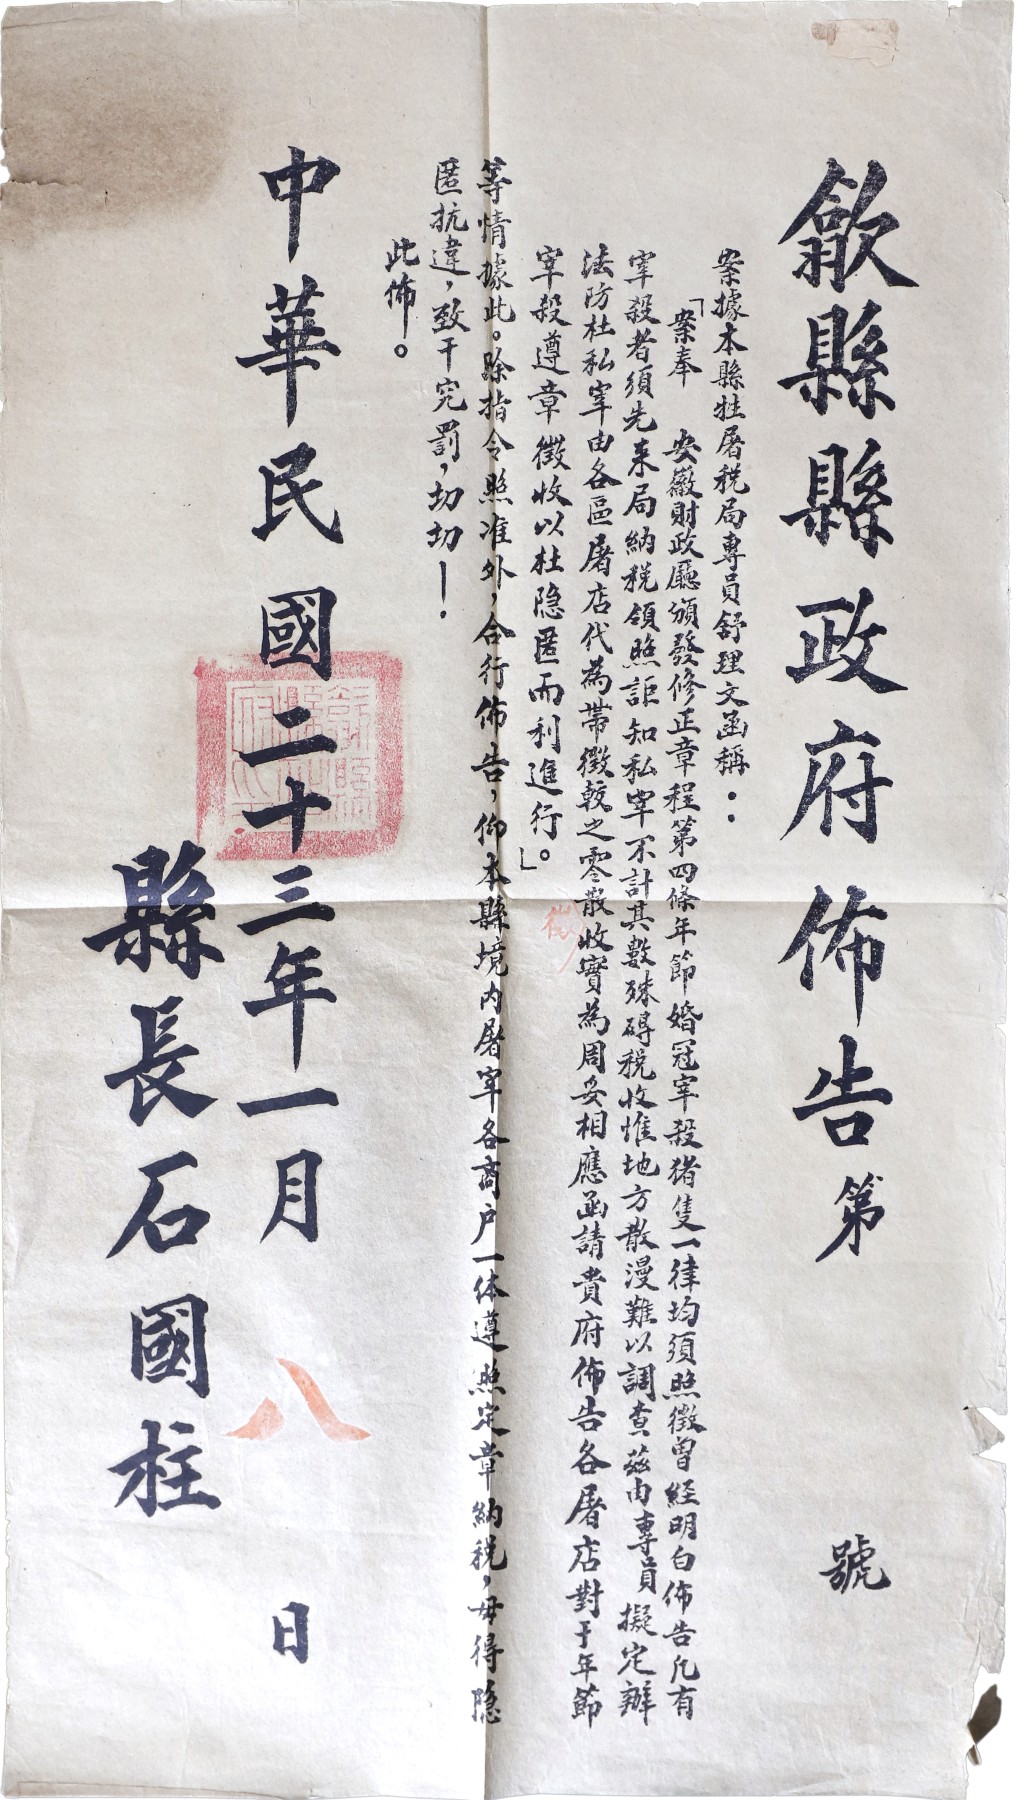 歙縣縣政府佈告第 號
案據本縣牲屠稅局專員舒理文函稱：
「案奉 安徽財政廳頒發修正章程第四條年節婚冠宰殺猪隻一律均須照徵曾經明白佈告凡有
宰殺者須先來局納稅領照詎知私宰不計其數殊碍稅收惟地方散漫難以調查茲由專員擬定辦
法防杜私宰由各區屠店代為帶徵較之零散收實為周妥相應函請貴府佈告各屠店對于年節
徵
宰殺遵章徵收以杜隐匿而利進行。」
等情據此。除指令照准外，合行佈告，仰本縣境內屠宰各商户一体遵照定章納稅，毋得隐
匿抗違，致干究罰，切切！
此佈。
中華民國二十三年一月 八 日
縣長石國柱